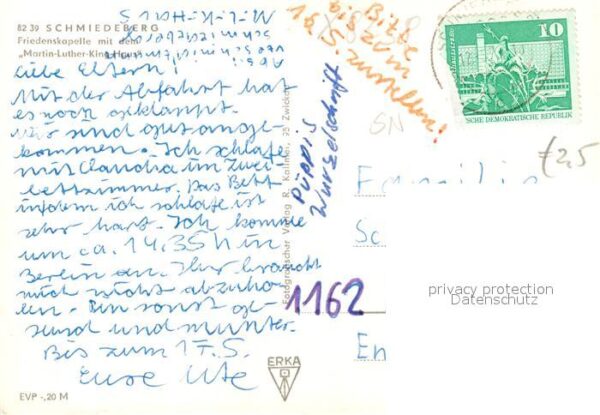 8239 SCHMIEDEBERG
Friedenskapelle mit dem
„Martin-Luther-King-Haus"
Liebe Eltern!
Mit der Abfahrt hat
es noch geklappt.
Wir sind gut ange-
kommen. Ich schlafe
mit Claudia im Zwei-
bettzimmer. Das Bett
indem ich schlafe ist
sehr hart. Ich komme
um ca. 14.35h in
Berlin an. Ihr braucht
mich nicht abzuho-
len. Bin sonst ge-
sund und munter.
Bis zum 17.5.
Eure Ute
EVP -,20 M
ERKA
Fotografischer Verlag R. Kallmer, 95 Zwickau
Püppis
Wurschelschrift
1162
Bitte
bis zum
16.5. zustellen!
SN
10
SCHE DEMOKRATISCHE REPUBLIK
€2,5
Familie
Sc
En
privacy protection
Datenschutz